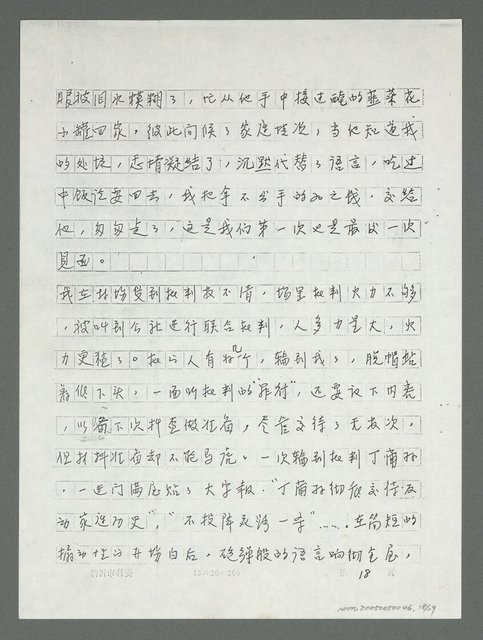 眼被泪水模糊了，忙从他手中接过腌的韮菜花
小罐回家，彼此问候了家庭境况，当他知道我
的处境，表情凝结了，沉默代替了语言，吃过
中饭说要回去，我把拿不出手的20元钱，交给
他，匆匆走了，这是我们第一次也是最后一次
见面。
我在林场受到批判数不清，场里批判火力不够
，被叫到公社进行联合批判，人多力量大，火
力更猛了。批的人有好几个，轮到我了，脱帽站
着低下头，一面听批判的"罪行"，还要记下内容
，以备下次押台做准备，尽管交待了无数次，
但材料准备却不能马虎。一次轮到批判丁
，一进门满屋贴了大字报"丁 彻底交待反
动家庭历史"，"不投降死路一条"……在简短的
的开场白后，砲弹般的语言响彻全屋，
15×20=300
18
NMTL20050050046, 18/29